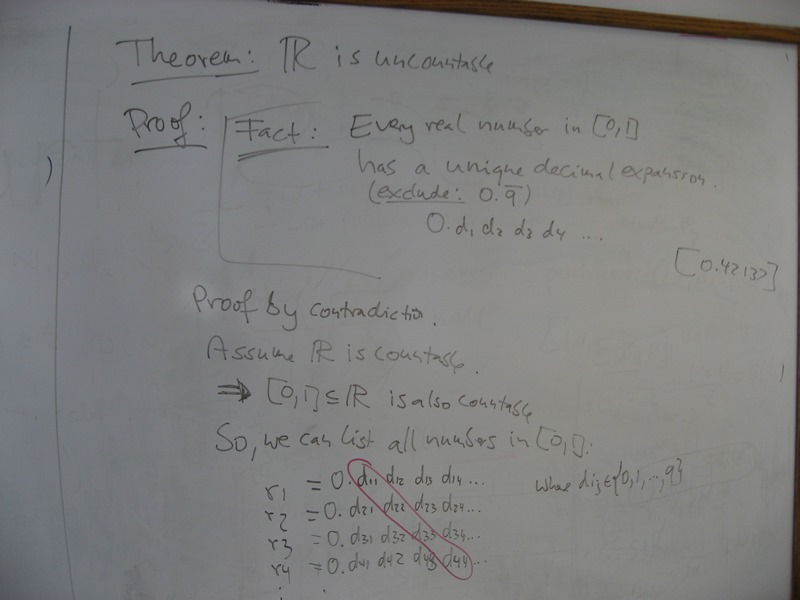 Theorem: ℝ is uncountable
Proof: Fact: Every real number in [0,1]
has a unique decimal expansion.
(exclude: 0.9̅)
0.d₁ d₂ d₃ d₄ ...
[0.42137]
Proof by contradiction.
Assume ℝ is countable.
⇒ [0,1] ⊆ ℝ is also countable
So, we can list all numbers in [0,1]:
r₁ = 0.d₁₁ d₁₂ d₁₃ d₁₄... where dᵢⱼ∈{0,1,...,9}
r₂ = 0.d₂₁ d₂₂ d₂₃ d₂₄...
r₃ = 0.d₃₁ d₃₂ d₃₃ d₃₄...
r₄ = 0.d₄₁ d₄₂ d₄₃ d₄₄...